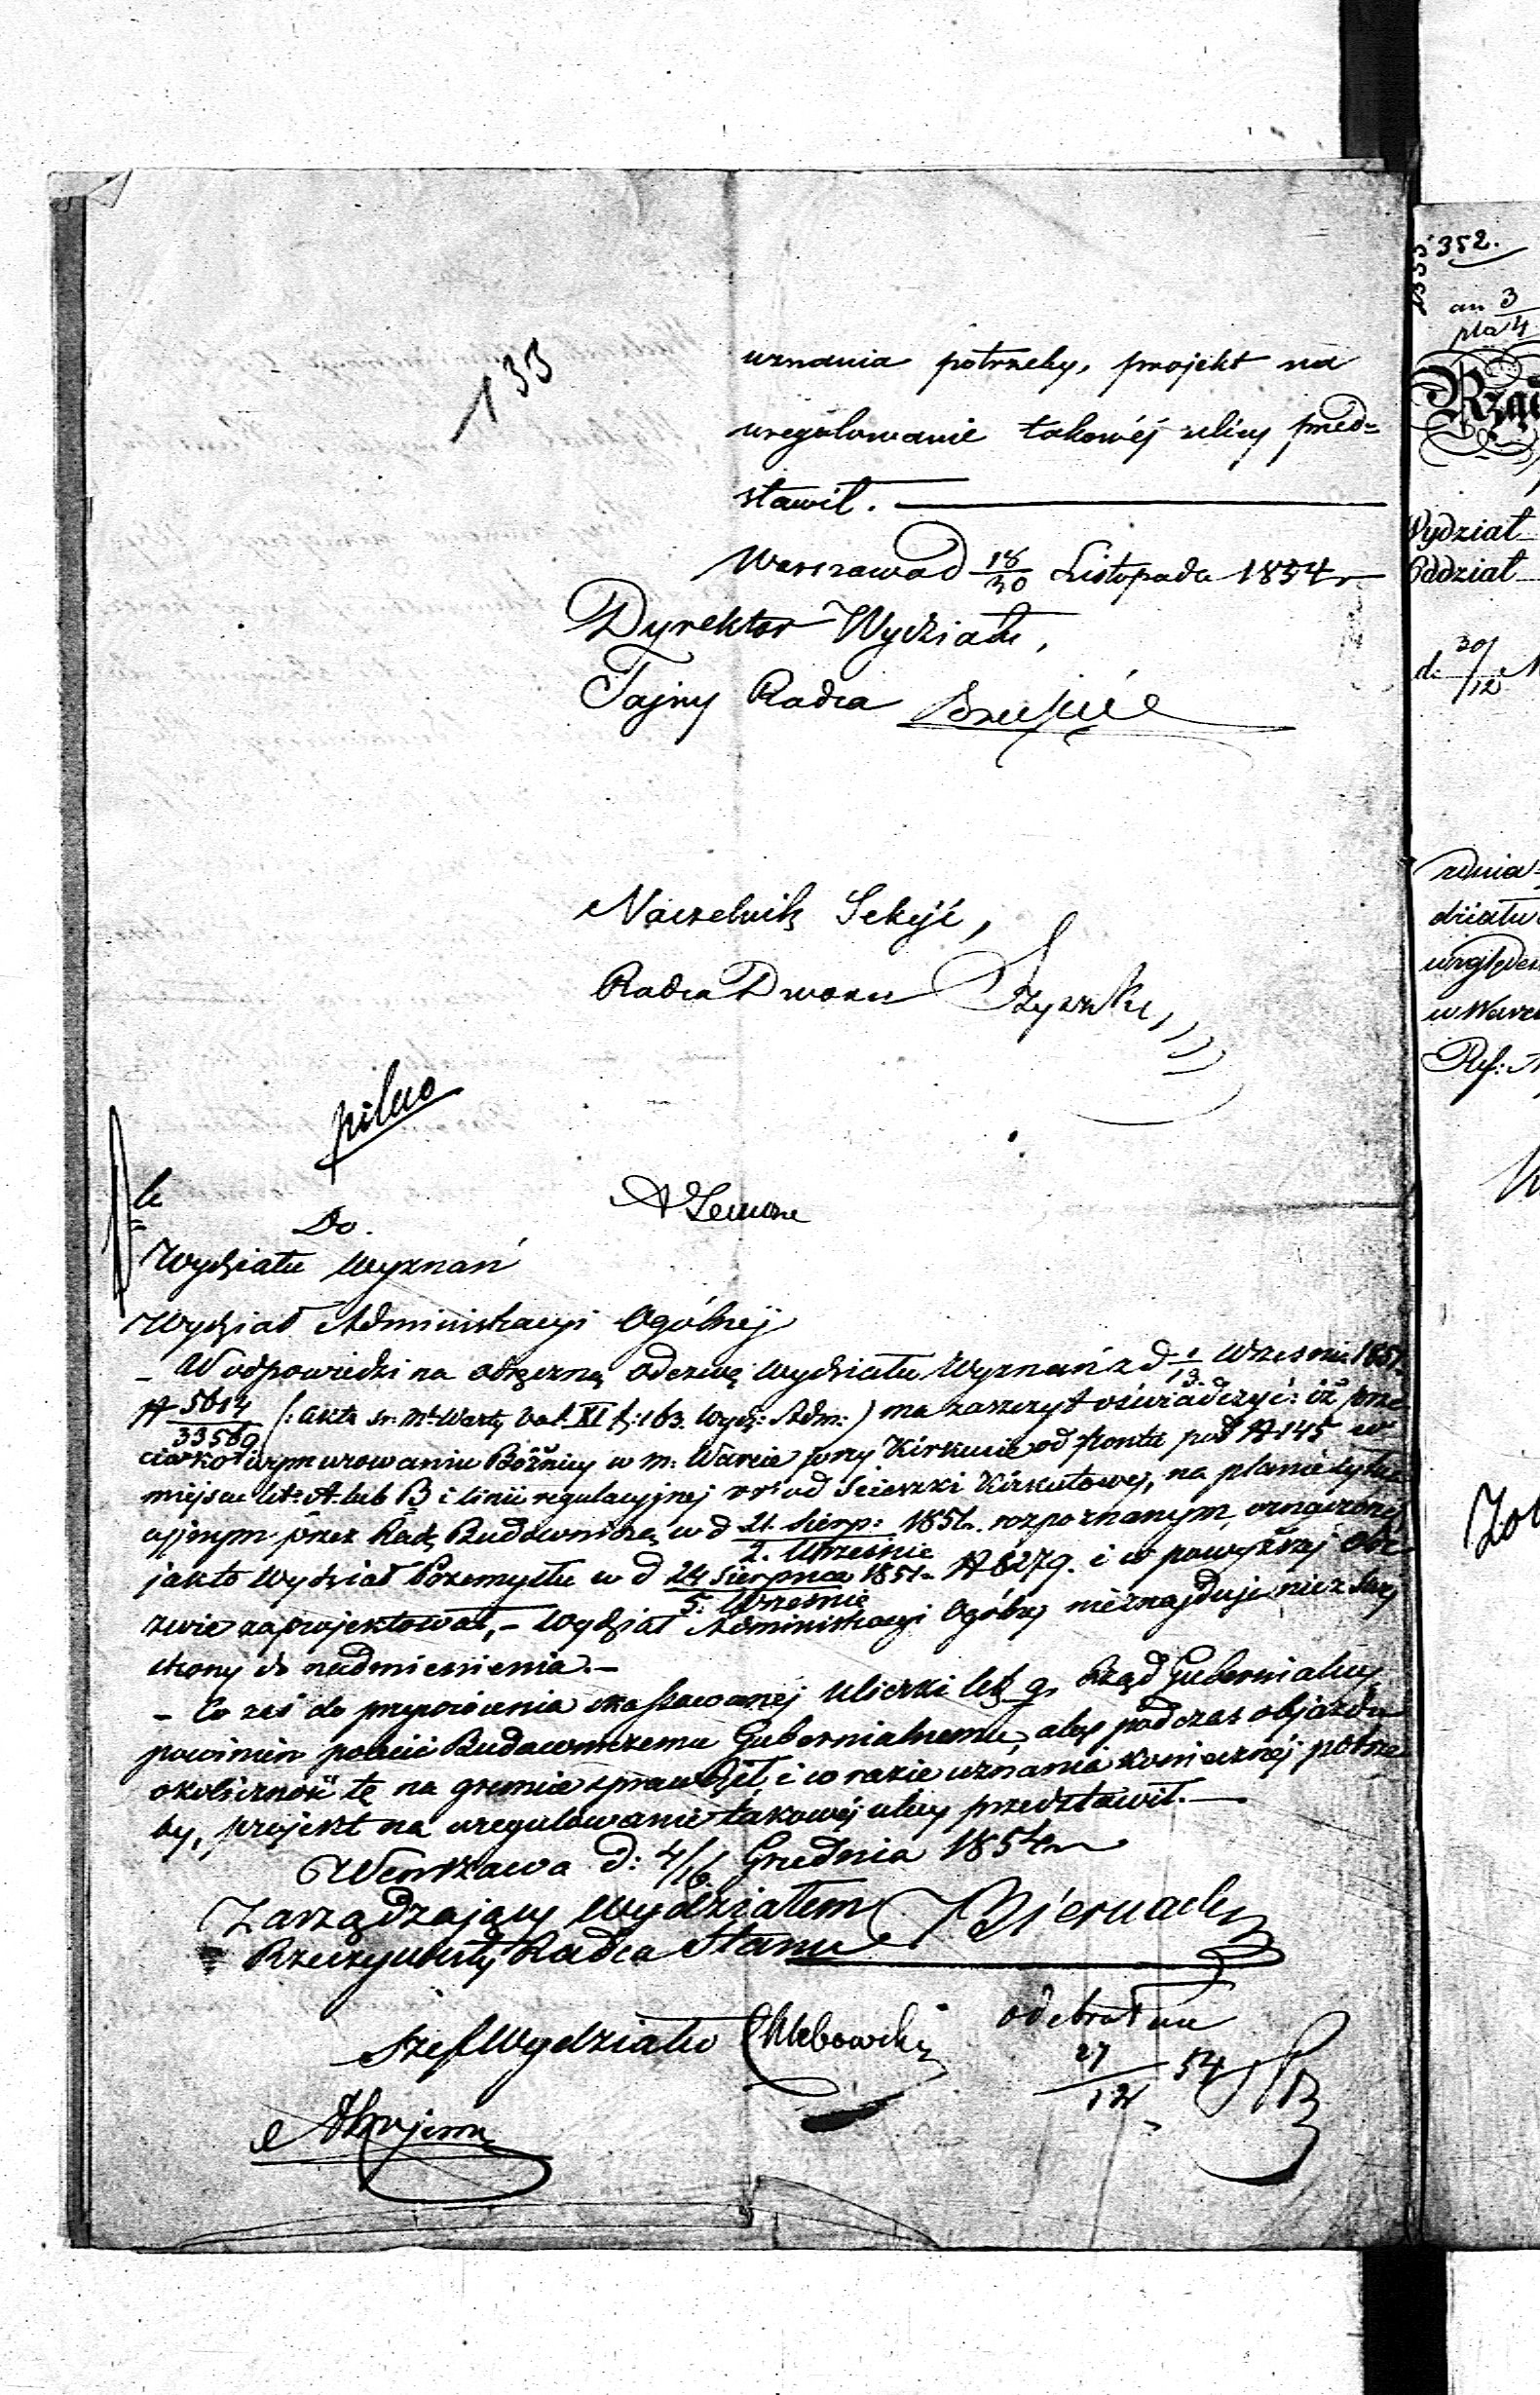 133
uznania potrzeby, projekt na
uregulowanie takowéj ulicy przed=
stawił.
Warszawa d 18/30 Listopada 1854 r
Dyrektor Wydziału,
Tajny Radca
Naczelnik Sekcyi,
Radca Dworu
pilno
Do.
Wydziału Wyznań
Wydział Administracyi Ogólnéj
– W odpowiedzi na odręczną odezwę Wydziału Wyznań z d 1/13 Września 1851
N 5614/33569 (: Akta m. Warty Vol. XI f: 163. Wydz: Adm: ) ma zaszczyt oświadczyć: iż prze
ciwko wymurowaniu Bóżnicy w m. Warcie przy Kirkucie od frontu pod N 145 w
miejscu lit: A. lub B i linii regulacyjnej od Scieszki Kirkutowej, na planie sytu
acyjnym przez Radę Budowniczą w d 21. Sierp:/2. Września 1851 r. rozpoznanym, oznaczonéj
jak to Wydział Przemysłu w d 24 Sierpnia/5. Września 1851 r. N 8279. i w powyższej Ode
zwie zaprojektował, – Wydział Administracyi Ogólnej nieznajduje nic z swej
strony do nadmienienia. –
– Co zaś do przywrócenia skassowanej Uliczki lit. g. Rząd Gubernialny
powinien polecić Budowniczemu Gubernialnemu, aby podczas objazdu
okoliczność tę na gruncie sprawdził, i w razie uznania koniecznéj potrze
by, projekt na uregulowanie takowéj ulicy przedstawił. –
Warszawa d: 4/16 Grudnia 1854 r
Zarządzający Wydziałem
Rzeczywisty Radca Stanu Biernacki
Szef Wydziału Chlebowski
odebrał
27/12 54
352.
Wydział
Oddział
w Warsz